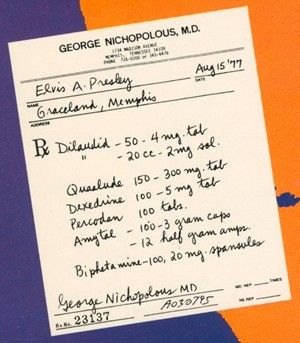 GEORGE NICHOPOLOUS, M.D.
1734 MADISON AVENUE
MEMPHIS, TENNESSEE 38104
PHONE 726-0200 or 345-4478
Elvis A. Presley Aug 15 '77
NAME DATE
Graceland, Memphis
ADDRESS
Rx Dilaudid - 50 - 4 mg. tab
" - 20 cc - 2 mg sol.
Quaalude 150 - 300 mg. tab
Dexedrine 100 - 5 mg tab
Percodan 100 tabs.
Amytal - 100 - 3 gram caps
- 12 half gram amps.
Biphetamine - 100, 20 mg. spansules
George Nichopolous MD
A030795 NO REP TIMES
Rx No. 23137 NR REP